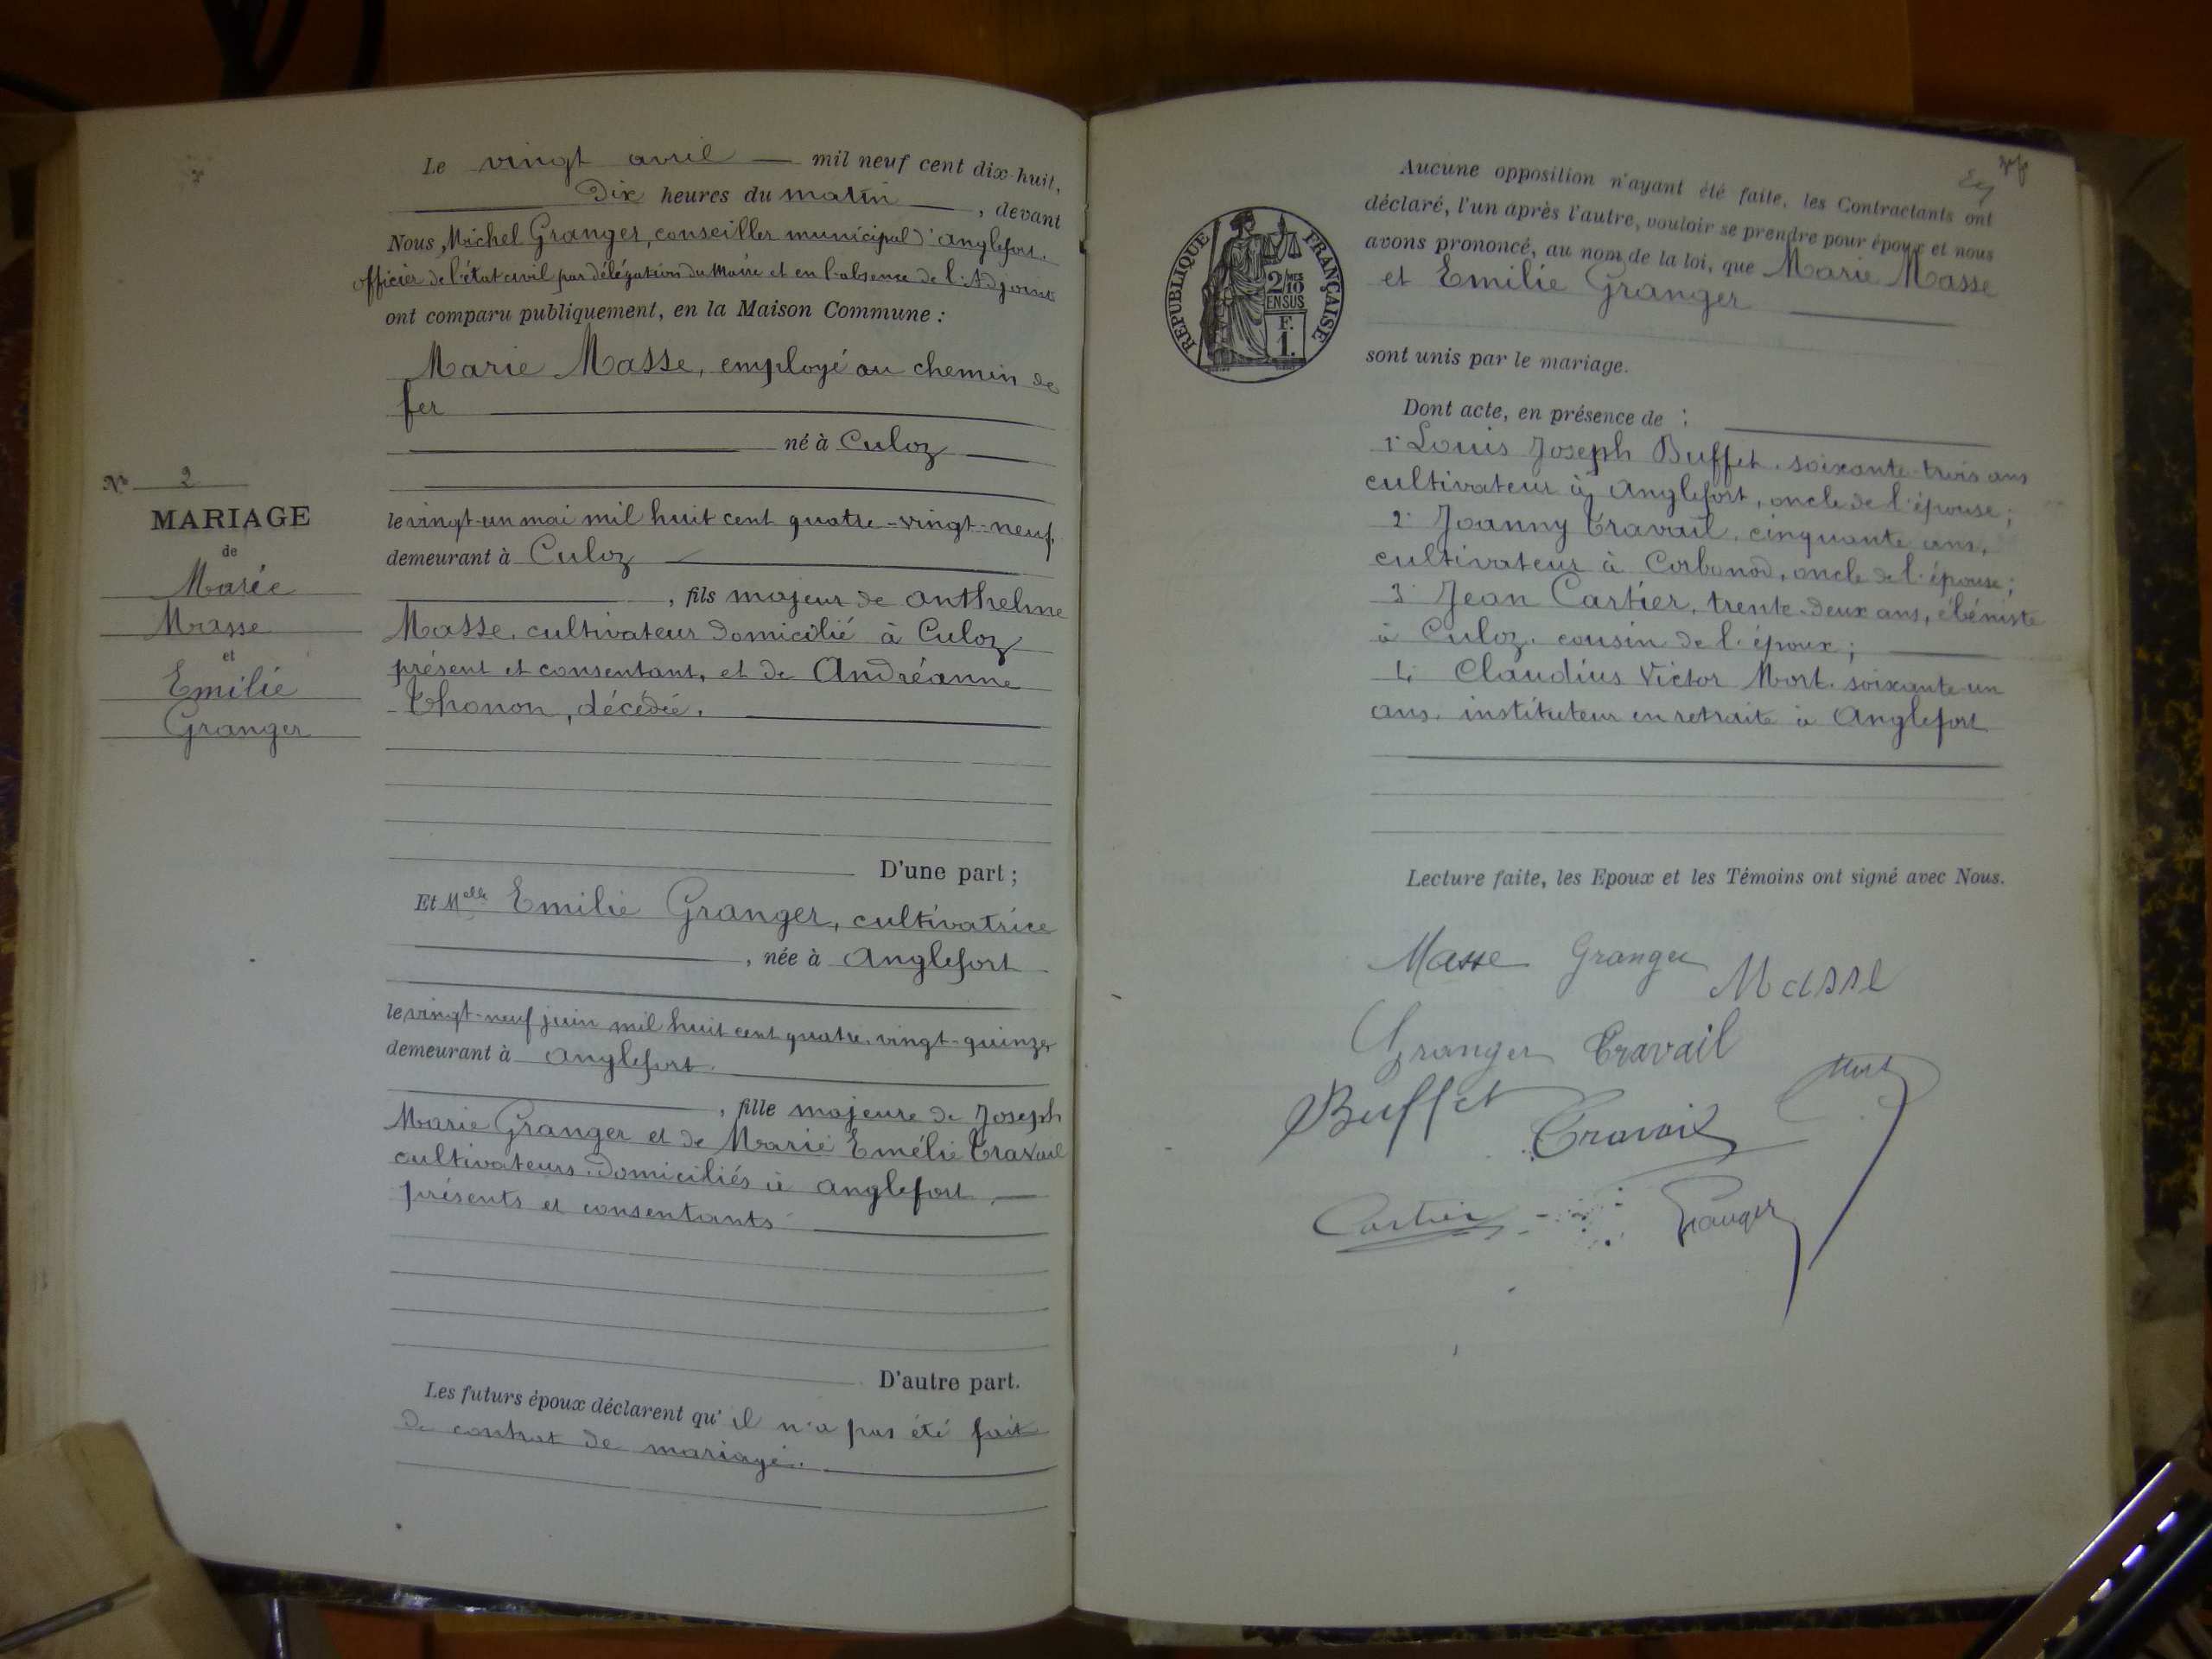 Le vingt avril — mil neuf cent dix-huit,
Dix heures du matin —, devant
Nous, Michel Granger, conseiller municipal d'Anglefort.
officier de l'état civil par délégation du Maire et en l'absence de l'Adjoint
ont comparu publiquement, en la Maison Commune :
Marie Masse, employé au chemin de
fer
né à Culoz
le vingt-un mai mil huit cent quatre-vingt-neuf,
demeurant à Culoz
, fils majeur de Anthelme
Masse, cultivateur domicilié à Culoz
présent et consentant, et de Andréanne
Thonon, décédée.
D'une part ;
Et Melle Emilie Granger, cultivatrice
, née à Anglefort
le vingt-neuf juin mil huit cent quatre-vingt-quinze,
demeurant à Anglefort.
, fille majeure de Joseph
Marie Granger et de Marie Emélie Travail
cultivateurs domiciliés à Anglefort,
présents et consentants
D'autre part.
Les futurs époux déclarent qu'il n'a pas été fait
de contrat de mariage.
No 2
MARIAGE
de
Marie
Masse
et
Emilie
Granger
Aucune opposition n'ayant été faite, les Contractants ont
déclaré, l'un après l'autre, vouloir se prendre pour époux et nous
avons prononcé, au nom de la loi, que Marie Masse
et Emilie Granger
sont unis par le mariage.
RÉPUBLIQUE FRANÇAISE
2/10 MES
EN SUS
F.
1.
Dont acte, en présence de :
1° Louis Joseph Buffet, soixante-trois ans
cultivateur à Anglefort, oncle de l'épouse ;
2° Joanny Travail, cinquante ans,
cultivateur à Corbonod, oncle de l'épouse ;
3° Jean Cartier, trente-deux ans, ébéniste
à Culoz, cousin de l'époux ;
4° Claudius Victor Mort, soixante-un
ans, instituteur en retraite à Anglefort
Lecture faite, les Epoux et les Témoins ont signé avec Nous.
Masse Granger Masse
Granger Travail
Buffet Travail Mort
Cartier Granger